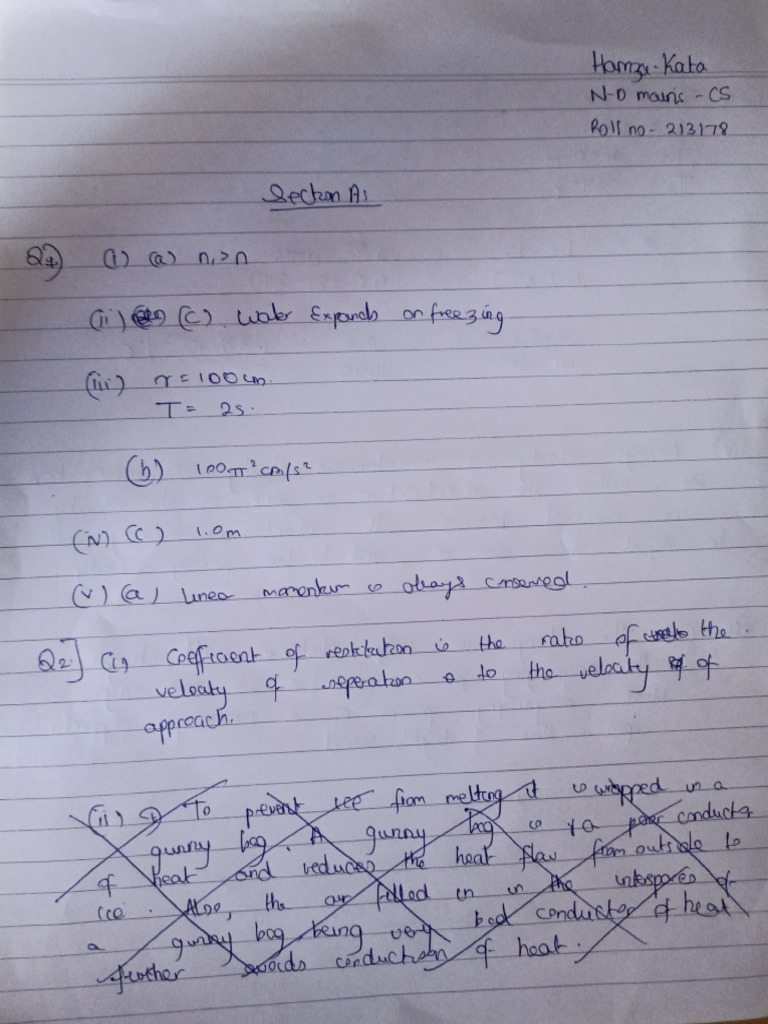 Hamza Kata
N-D mains - CS
Roll no - 213178
Section A:
Q1) (i) (a) n, > n
(ii) (C) Water Expands on freezing
(iii) r = 100 cm.
T = 2s.
(b) 100π² cm/s²
(iv) (C) 1.0m
(v) (a) Linear momentum is always conserved.
Q2] (i) Coefficient of restitution is the ratio of the
velocity of seperation to the velocity of
approach.
(ii) To prevent ice from melting it is wrapped in a
gunny bag. A gunny bag is a poor conductor
of heat and reduces the heat flow from outside to
ice. Also, the air filled in in the interspaces of
a gunny bag being very bad conductor of heat
further avoids conduction of heat.